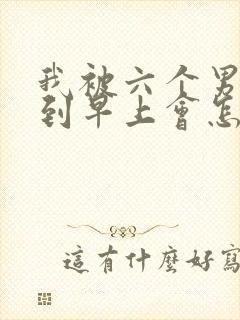 我被六个男
到早上會怎
這有什麼好寫